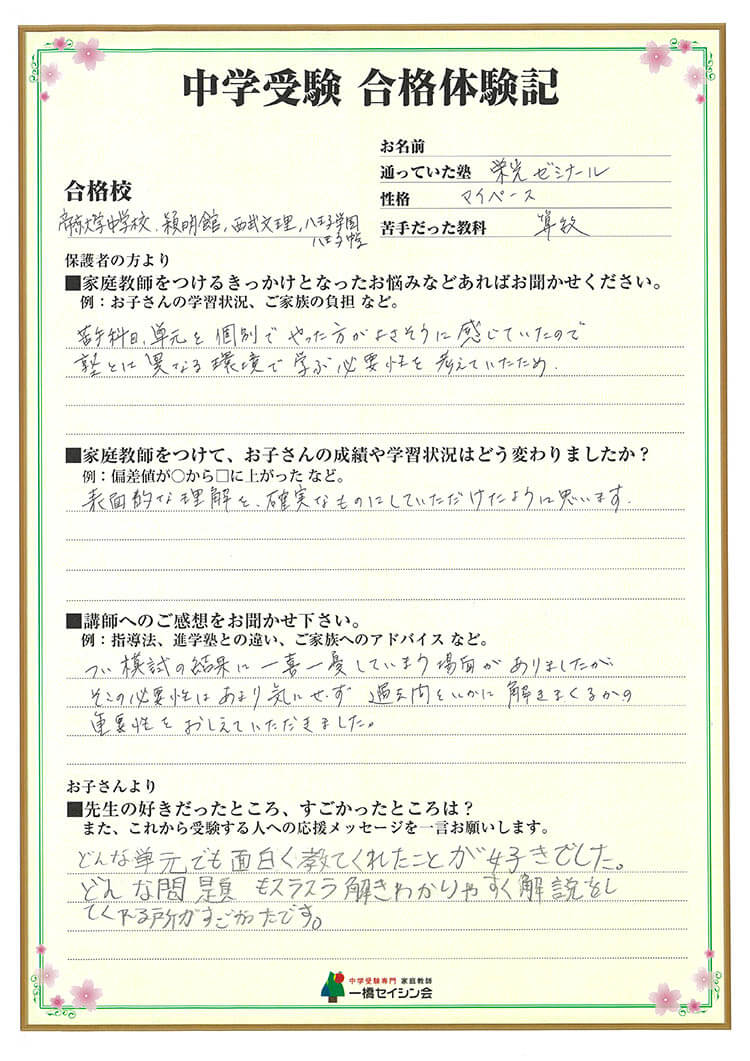 中学受験 合格体験記
お名前
通っていた塾 栄光ゼミナール
性格 マイペース
苦手だった教科 算数
合格校
帝京大学中学校、穎明館、西武文理、八王子学園
八王子中学
保護者の方より
■家庭教師をつけるきっかけとなったお悩みなどあればお聞かせください。
例：お子さんの学習状況、ご家族の負担 など。
苦手科目、単元を個別でやった方がよさそうに感じていたので
塾とは異なる環境で学ぶ必要性を考えていたため.
■家庭教師をつけて、お子さんの成績や学習状況はどう変わりましたか？
例：偏差値が○から□に上がった など。
表面的な理解を、確実なものにしていただけたように思います.
■講師へのご感想をお聞かせ下さい。
例：指導法、進学塾との違い、ご家族へのアドバイス など。
つい模試の結果に一喜一憂してしまう場面がありましたが
そこの必要性はあまり気にせず 過去問をいかに解きまくるかの
重要性をおしえていただきました。
お子さんより
■先生の好きだったところ、すごかったところは？
また、これから受験する人への応援メッセージを一言お願いします。
どんな単元でも面白く教てくれたことが好きでした。
どんな問題もスラスラ解きわかりやすく解説をし
てくれる所がすごかったです。
中学受験専門 家庭教師
一橋セイシン会